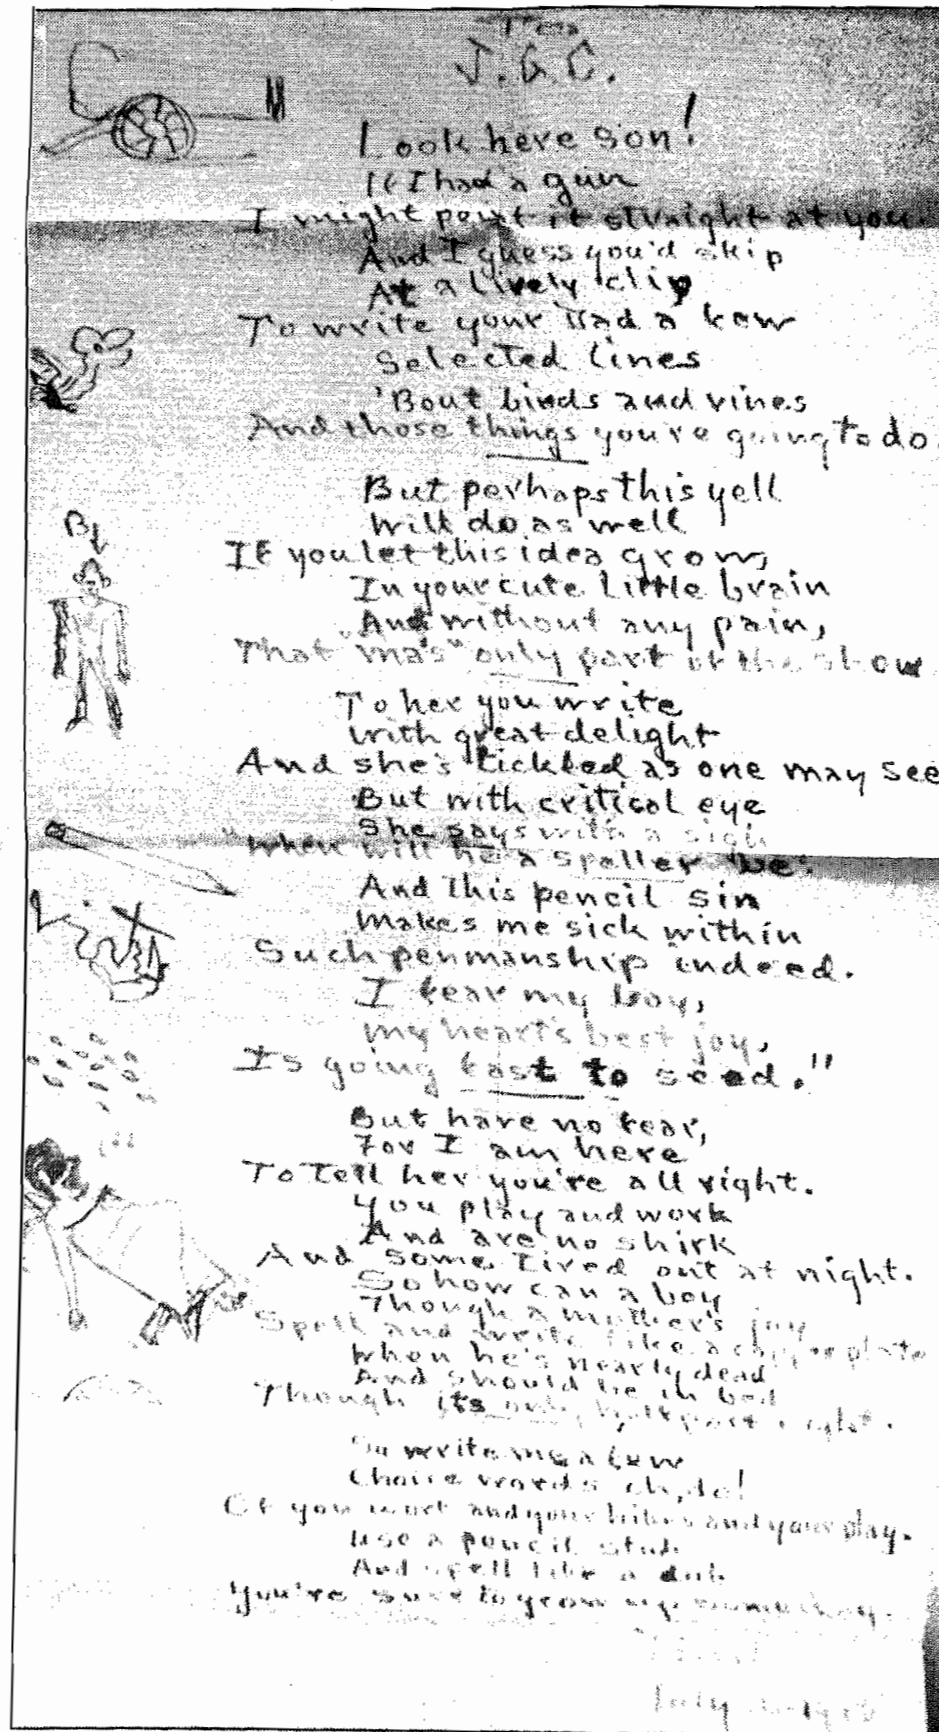 J.G.C.
Look here son!
If I had a gun
I might point it straight at you.
And I guess you'd skip
At a lively clip
To write your Dad a few
Selected lines
'Bout birds and vines
And those things you're going to do.
But perhaps this yell
Will do as well
If you let this idea grow,
In your cute little brain
And without any pain,
That "ma's" only part of the show
To her you write
With great delight
And she's tickled as one may see
But with critical eye
She says with a sigh
"When will he a speller be.
And this pencil sin
Makes me sick within
Such penmanship indeed.
I fear my boy,
my heart's best joy,
Is going fast to seed."
But have no fear,
For I am here
To tell her you're all right.
You play and work
And are no shirk
And some tired out at night.
So how can a boy
Though a mother's joy
Spell and write like a plate
When he's nearly dead
And should be in bed
Though its only half past
So write me a few
Choice words
Of your work and your hikes and your play.
Use a pencil stub
And spell like a dub
You're sure to grow up some day.
July
B